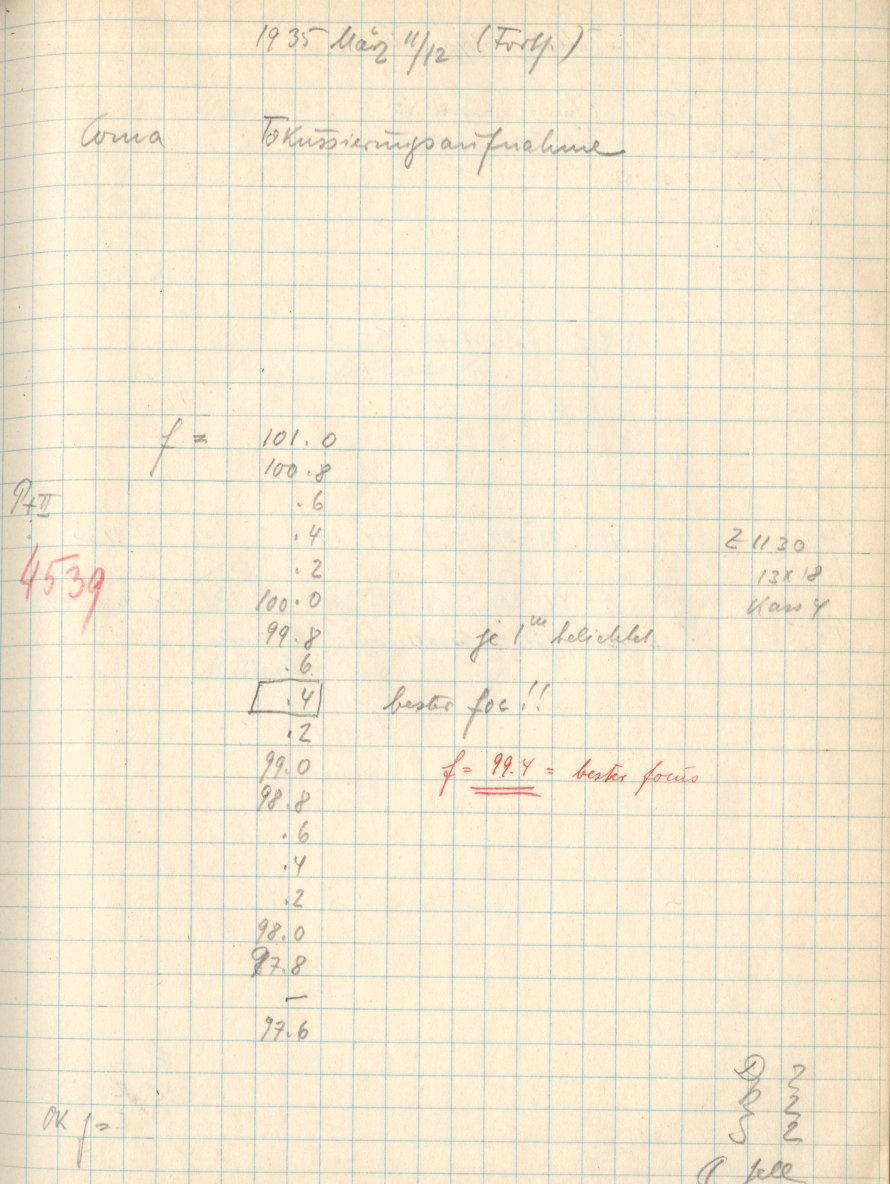 1935 März 11/12 (Forts.)
Coma Fokussierungsaufnahme
f = 101.0
100.8
.6
.4
.2
100.0
99.8 je 1ᵐ belichtet
.6
.4 bester foc!!
.2
99.0 f = 99.4 = bester focus
98.8
.6
.4
.2
98.0
97.8
–
97.6
Pt II
4539
Z 1130
13x18
Kass 4
OK f =
D 2
R 2
S 2
hell